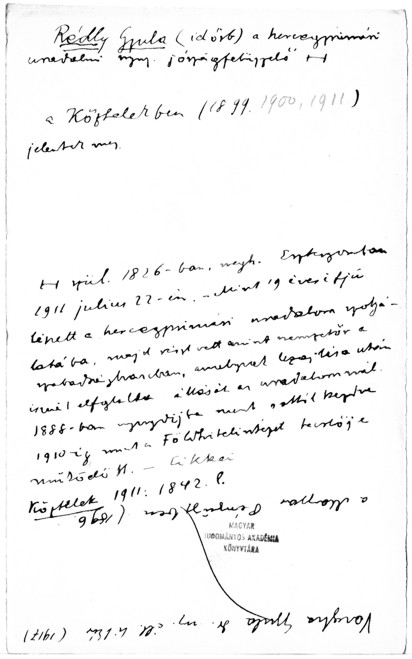 Rédly Gyula (idősb) a hercegprimási
uradalmi nyug. jószágfelügyelő H
a Köztelekben (1899. 1900, 1911)
jelentek meg.
H szül. 1826-ban, megh. Esztergomban
1911 julius 22-én. – Mint 19 éves ifjú
lépett a hercegprimási uradalom szolgá-
latába, majd részt vett mint nemzetőr a
szabadságharcban, amelynek lezajlása után
ismét elfoglalta állását az uradalomnál.
1888-ban nyugdíjba ment s ettől kezdve
1910-ig mint a Földhitelintézet becslője
működött. – Cikkei
Köztelek 1911. 1842. l.
a Magyar (1896
MAGYAR
TUDOMÁNYOS AKADÉMIA
KÖNYVTÁRA
Vargha Gyula (1917)